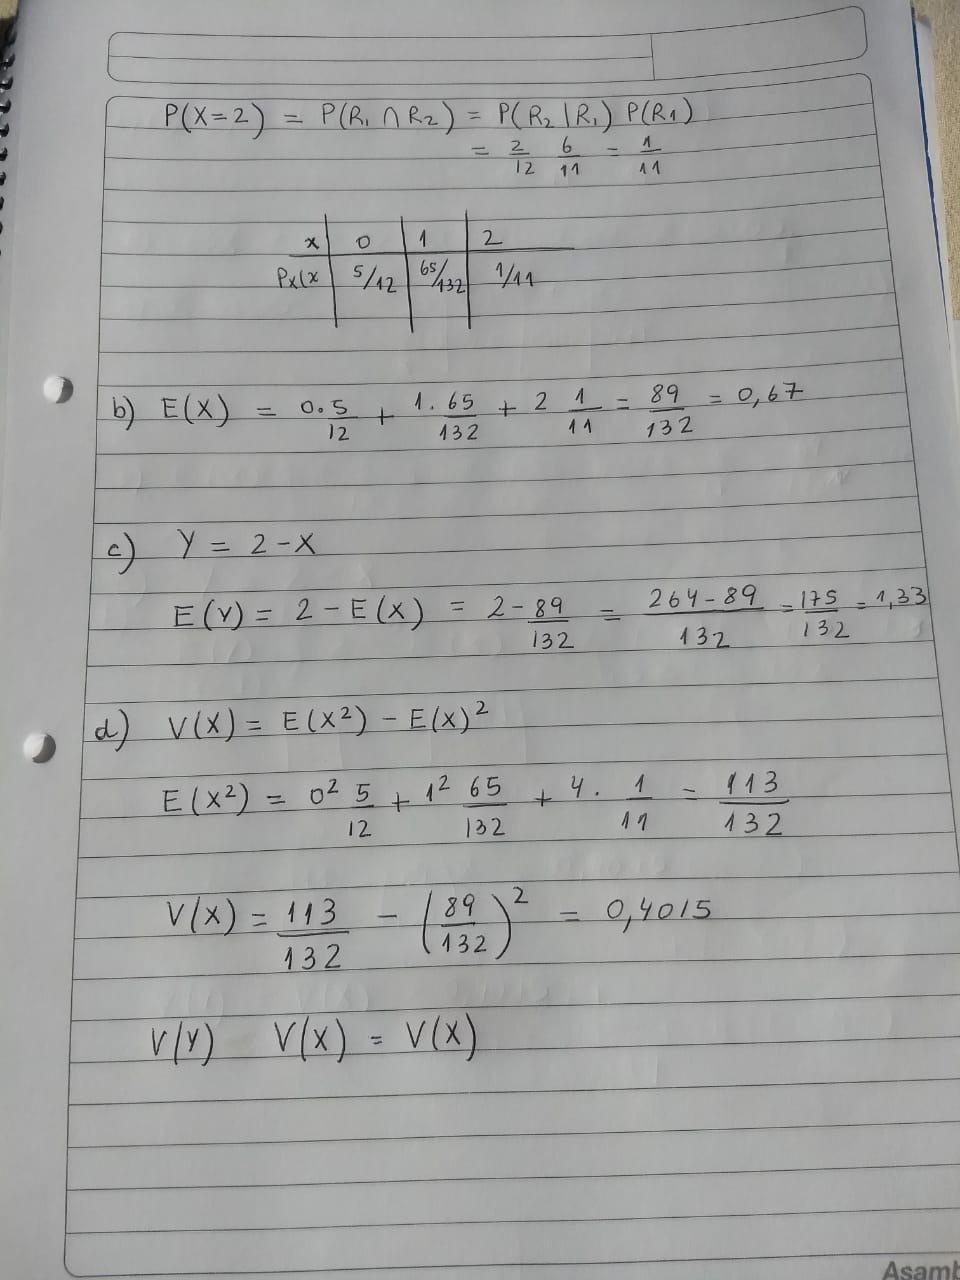 P(X=2) = P(R₁ ∩ R₂) = P(R₂ | R₁) P(R₁)
= 2/12 6/11 = 1/11
x | 0 | 1 | 2
Px(x | 5/12 | 65/132 | 1/11
b) E(X) = 0.5/12 + 1.65/132 + 2 1/11 = 89/132 = 0,67
c) Y = 2 - X
E(Y) = 2 - E(X) = 2 - 89/132 = 264-89/132 = 175/132 = 1,33
d) V(X) = E(X²) - E(X)²
E(X²) = 0² 5/12 + 1² 65/132 + 4. 1/11 = 113/132
V(X) = 113/132 - (89/132)² = 0,4015
V(Y) V(X) = V(X)
Asamb